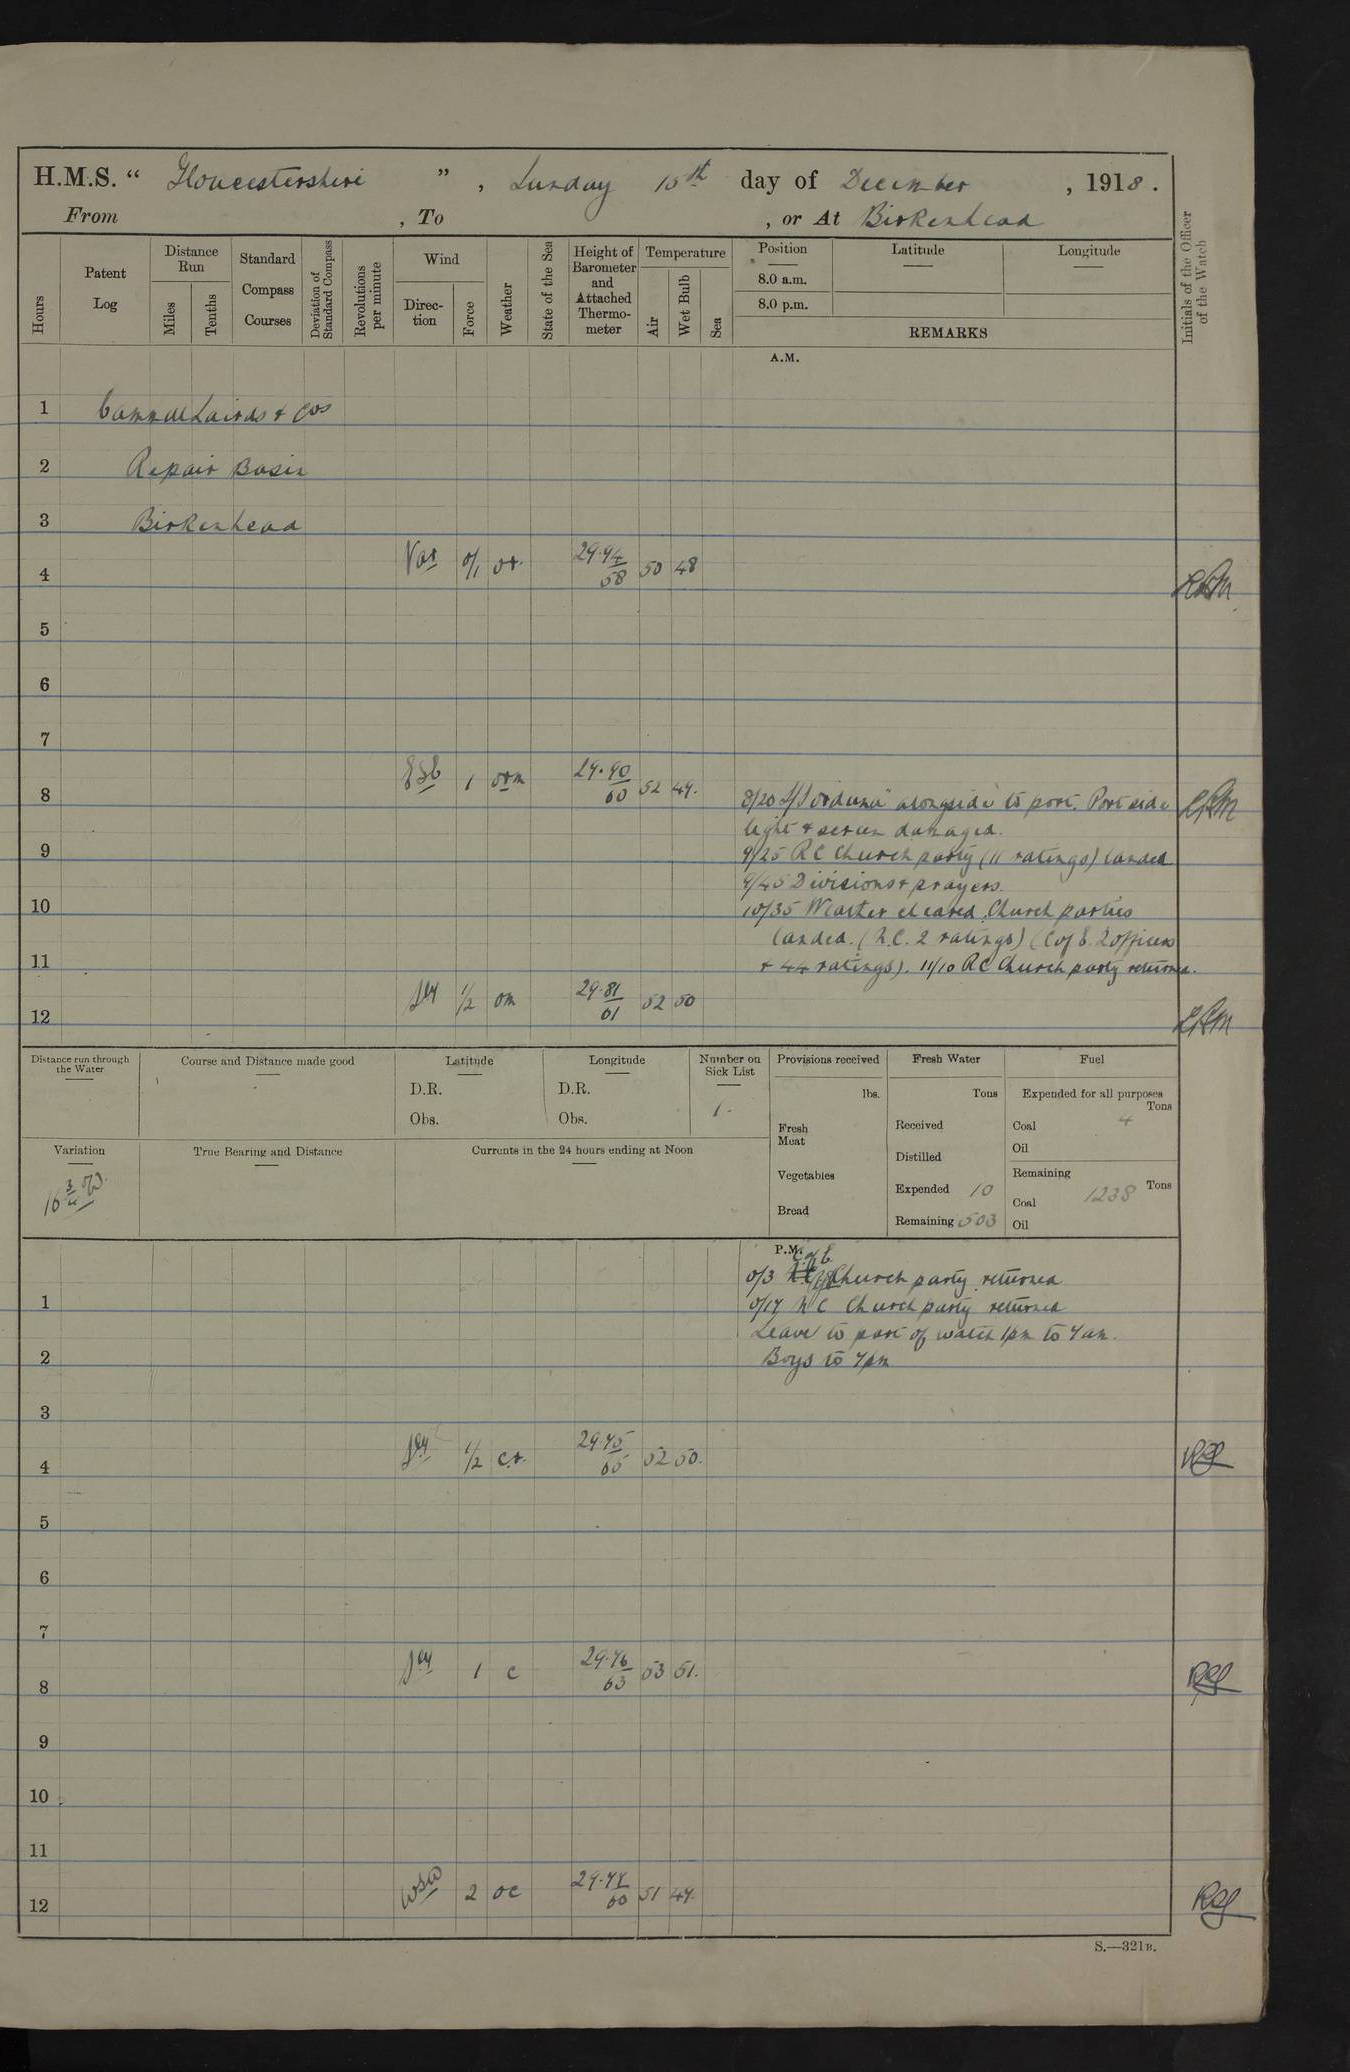 H.M.S. “ Gloucestershire ” , Sunday 15th day of December , 1918 .
From , To , or At Birkenhead
Hours
Patent Log
Distance Run
Miles
Tenths
Standard Compass Courses
Deviation of Standard Compass
Revolutions per minute
Wind
Direc-tion
Force
Weather
State of the Sea
Height of Barometer and Attached Thermo-meter
Temperature
Air
Wet Bulb
Sea
Position
8.0 a.m.
8.0 p.m.
Latitude
Longitude
REMARKS
Initials of the Officer of the Watch
A.M.
1 Cammel Lairds & Cos
2 Repair Basin
3 Birkenhead
4 Var 0/1 or. 29.94/58 50 48
5
6
7
8 1 orm 29.90/60 52 49. 8/20 S/S "orduna" alongside to port. Port side
light & screen damaged.
9 9/25 RC Church party (11 ratings) landed
9/45 Divisions & prayers.
10 10/35 Weather cleared. Church parties
landed. (N.C. 2 ratings) (C of E. 2 officers
11 & 44 ratings). 11/10 RC Church party returned.
12 1/2 om 29.81/61 52 50
Distance run through the Water
Course and Distance made good
Latitude
D.R.
Obs.
Longitude
D.R.
Obs.
Number on Sick List
1.
Provisions received
lbs.
Fresh Meat
Vegetables
Bread
Fresh Water
Tons
Received
Distilled
Expended 10
Remaining 503
Fuel
Expended for all purposes
Tons
Coal 4
Oil
Remaining
Tons
Coal 1238
Oil
Variation
16 3/4 W.
True Bearing and Distance
Currents in the 24 hours ending at Noon
P.M.
C of E
0/3 Church party returned
1 0/17 N C Church party returned
Leave to part of watch 1pm to 7am.
2 Boys to 7pm
3
4 1/2 c.r. 29.75/65 52 50.
5
6
7
8 1 c 29.76/63 53 51.
9
10
11
12 WSW 2 oc 29.77/60 51 49.
S.—321B.